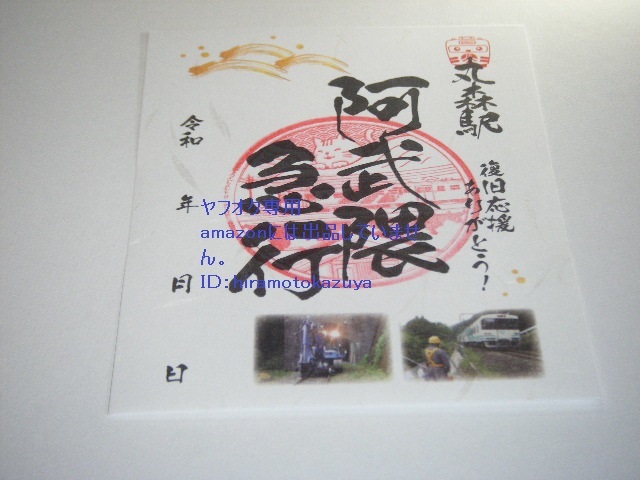 丸森駅
復旧応援
ありがとう!
阿武隈
急行
令和
年
月
日
ヤフオク専用
amazonには出品していませ
ん。
ID:hiramotokazuya